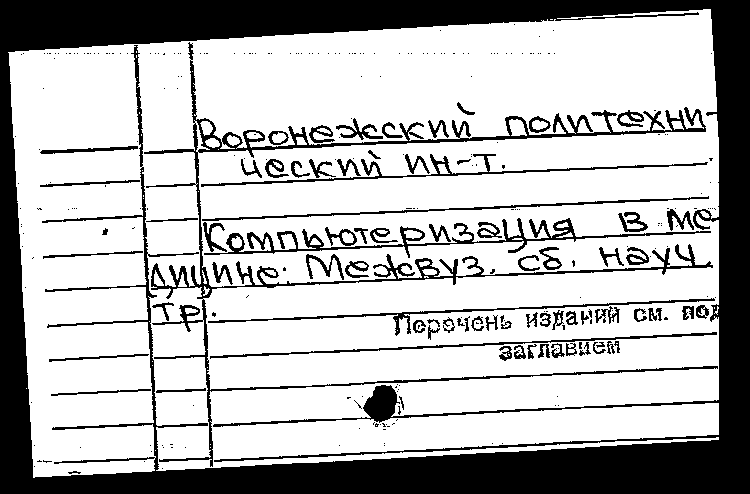 Воронежский политехни-
ческий ин-т.
Компьютеризация в ме-
дицине: Межвуз. сб. науч.
тр.
Перечень изданий см. под
заглавием